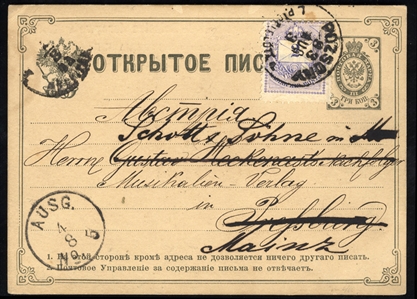 ОТКРЫТОЕ
POZSONY
3
3
ТРИ КОП.
Австрія
Schott's Söhne in
Herrn Gustav Heckenast's Nachfolger
Musikalien-Verlag
in
Pressburg
Mainz
AUSG.
4
8
No 5
1. На этой сторонѣ кромѣ адреса не дозволяется ничего другаго писать.
2. Почтовое Управленіе за содержаніе письма не отвѣчаетъ.